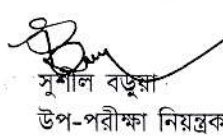 সুশীল বড়ুয়া
উপ-পরীক্ষা নিয়ন্ত্রক